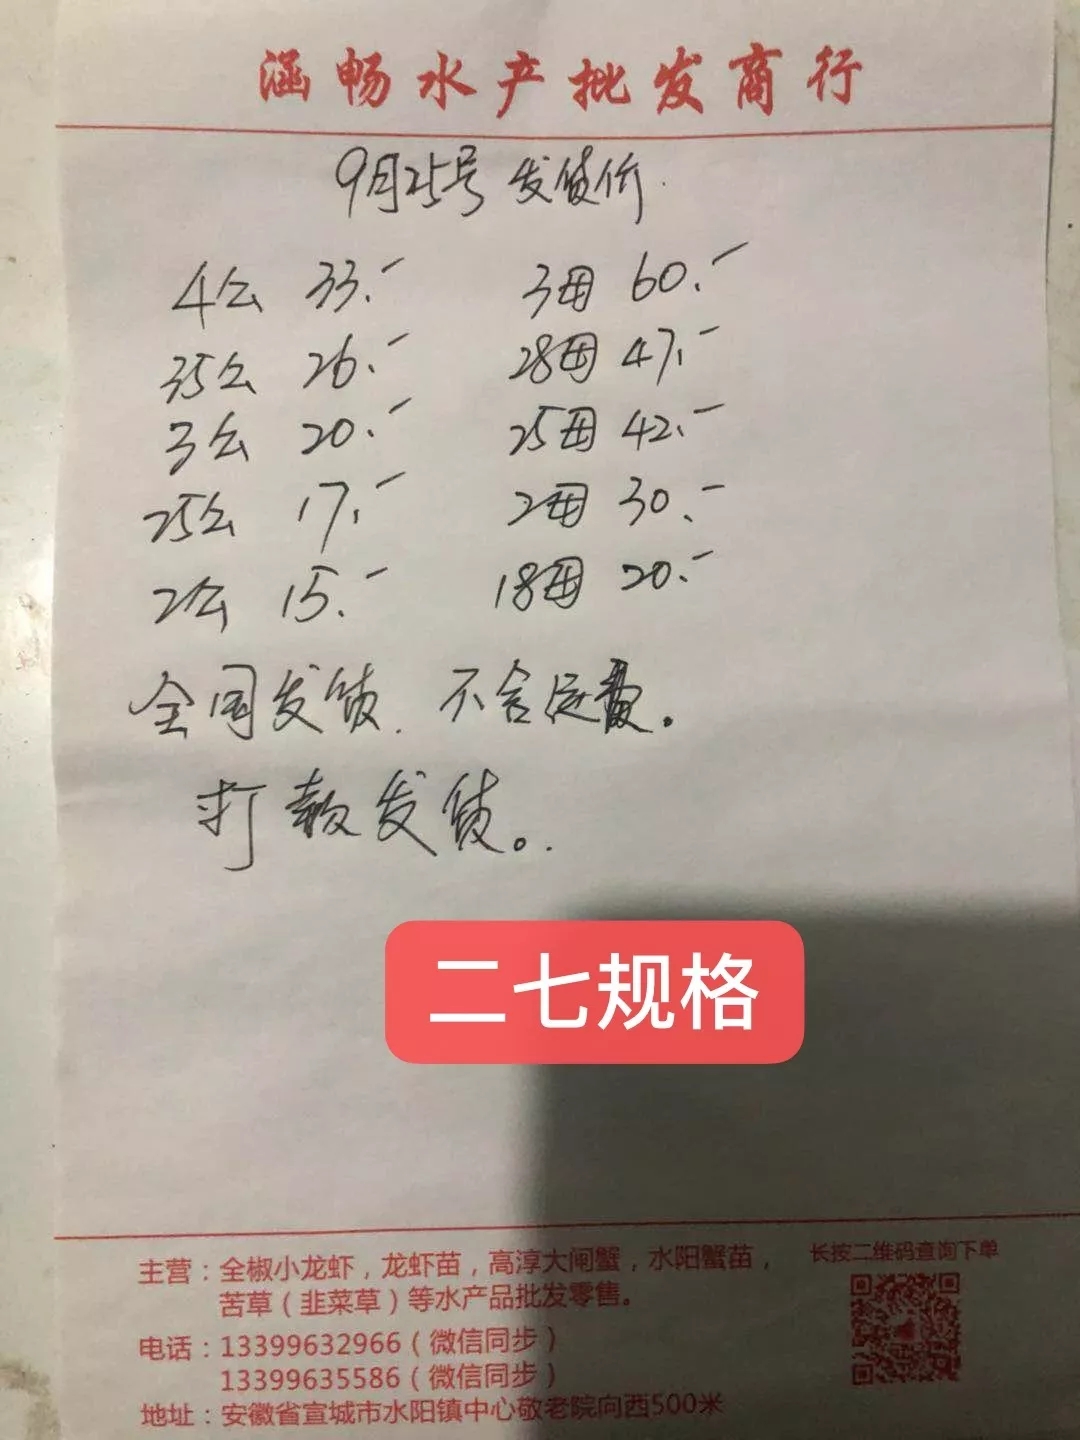 涵畅水产批发商行
9月25号 发货价.
4公 33.- 3母 60.-
35公 26.- 28母 47.-
3公 20.- 25母 42.-
25公 17.- 2母 30.-
2公 15.- 18母 20.-
全国发货. 不含运费。
打款发货。.
二七规格
主营：全椒小龙虾，龙虾苗，高淳大闸蟹，水阳蟹苗，
苦草（韭菜草）等水产品批发零售。
长按二维码查询下单
电话：13399632966（微信同步）
13399635586（微信同步）
地址：安徽省宣城市水阳镇中心敬老院向西500米